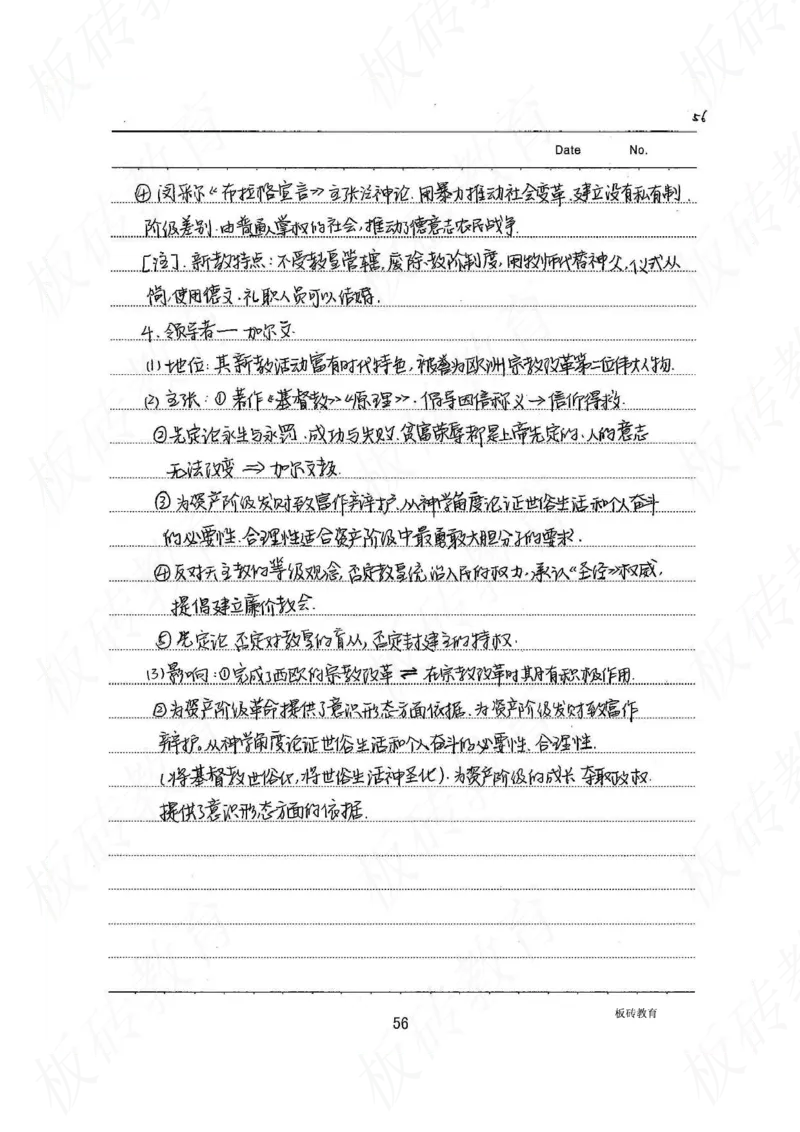 56
Date No.
④闵采尔《布拉格宣言》主张泛神论.用暴力推动社会变革.建立没有私有制.
阶级差别.由普通人掌权的社会,推动了德意志农民战争.
[注].新教特点:不受教皇管辖,废除教阶制度,用牧师代替神父,仪式从
简,使用德文.礼职人员可以结婚.
4.领导者—加尔文.
(1)地位:其新教活动富有时代特色,被誉为欧洲宗教改革第二位伟大人物.
(2)主张:①著作《基督教》《原理》.倡导因信称义→信仰得救.
②先定论永生与永罚.成功与失败.贫富荣辱都是上帝先定的.人的意志
无法改变⇒加尔文教.
③为资产阶级发财致富作辩护.从神学角度论证世俗生活和个人奋斗
的必要性.合理性适合资产阶级中最勇敢大胆分子的要求.
④反对天主教的等级观念,否定教皇统治人间的权力.承认《圣经》权威,
提倡建立廉价教会.
⑤先定论否定对教皇的盲从,否定封建主的特权.
(3)影响:①完成了西欧的宗教改革⇌在宗教改革时期有积极作用.
②为资产阶级革命提供了意识形态方面依据.为资产阶级发财致富作
辩护.从神学角度论证世俗生活和个人奋斗的必要性.合理性.
(将基督教世俗化,将世俗生活神圣化).为资产阶级的成长夺取政权.
提供了意识形态方面的依据.
56
板砖教育